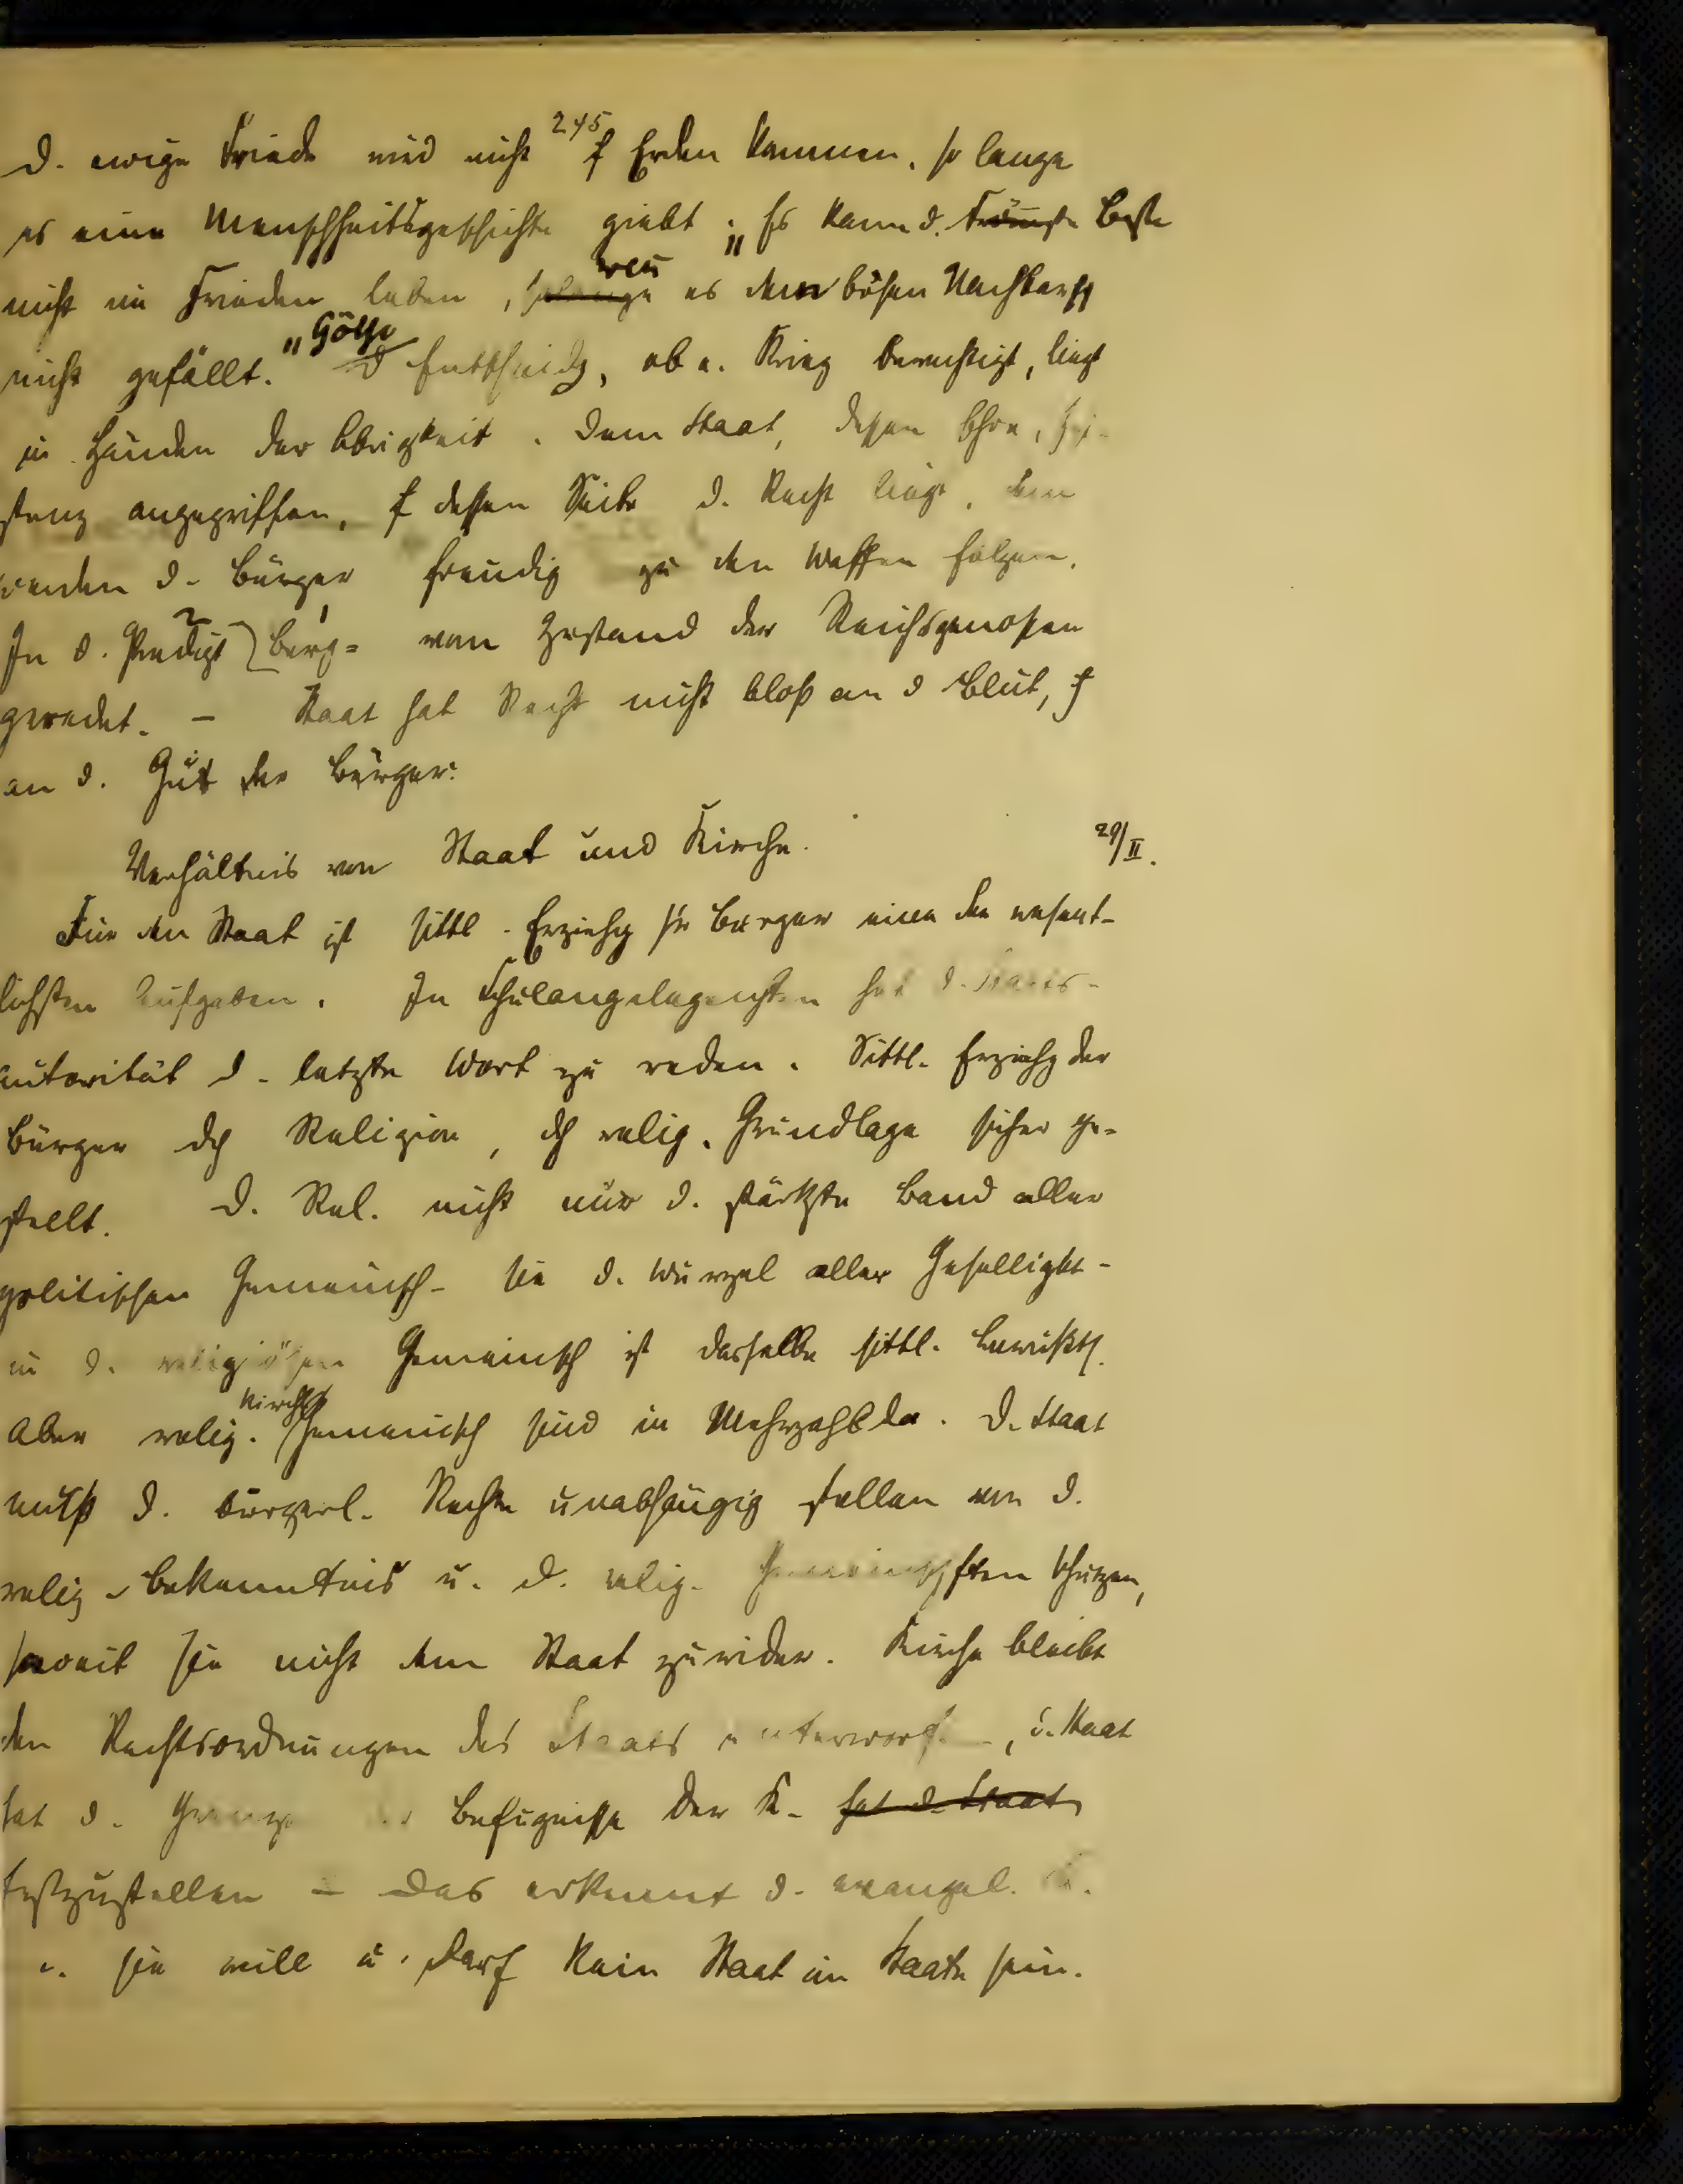 245
D. ewige Friede wird nicht f Erden kommen, so lange
es eine Menschheitsgeschichte giebt; „Es kann d. Frömste Beste
nicht in Frieden leben, solange wen es dem bösen Nachbarn
nicht gefällt." Göthe D Entscheidg, ob e. Krieg berechtigt, liegt
in Händen der Obrigkeit. Dem Staat, dessen Ehre, Exi-
stenz angegriffen, f dessen Seite d. Recht liegt, dem
werden d. Bürger freudig zu den Waffen folgen.
In d. Predigt Berg= vom Zustand der Reichsgenossen
geredet. – Staat hat Recht nicht bloß an d Blut,
an d. Gut der Bürger.
Verhältnis von Staat und Kirche. 29/II.
Für den Staat ist sittl. Erziehg sr Bürger eine der wesent-
lichsten Aufgaben. In Schulangelegenhten hat d. Staats-
autorität d. letzte Wort zu reden. Sittl. Erziehg der
Bürger dch Religion, dch relig. Grundlage sicher ge-
stellt. D. Rel. nicht nur d. stärkste Band aller
politischen Gemeinsch- sie d. Wurzel aller Geselligkt-
in d. religiösen Gemeinsch ist dasselbe sittl. Bewußts.
Aber relig. kirchl Gemeinsch sind in Mehrzahl da. D. Staat
muß d. bürgerl. Rechte unabhängig stellen von d.
relig. Bekenntnis u. d. relig. Gemeinschften schützen,
soweit sie nicht dem Staat zuwider. Kirche bleibt
den Rechtsordnungen des Staats unterworf-, d. Staat
hat d. Grenze der Befugnisse der K. hat d. Staat
festzustellen – Das erkennt d. evangel. K.
sie will u. darf kein Staat im Staate sein.